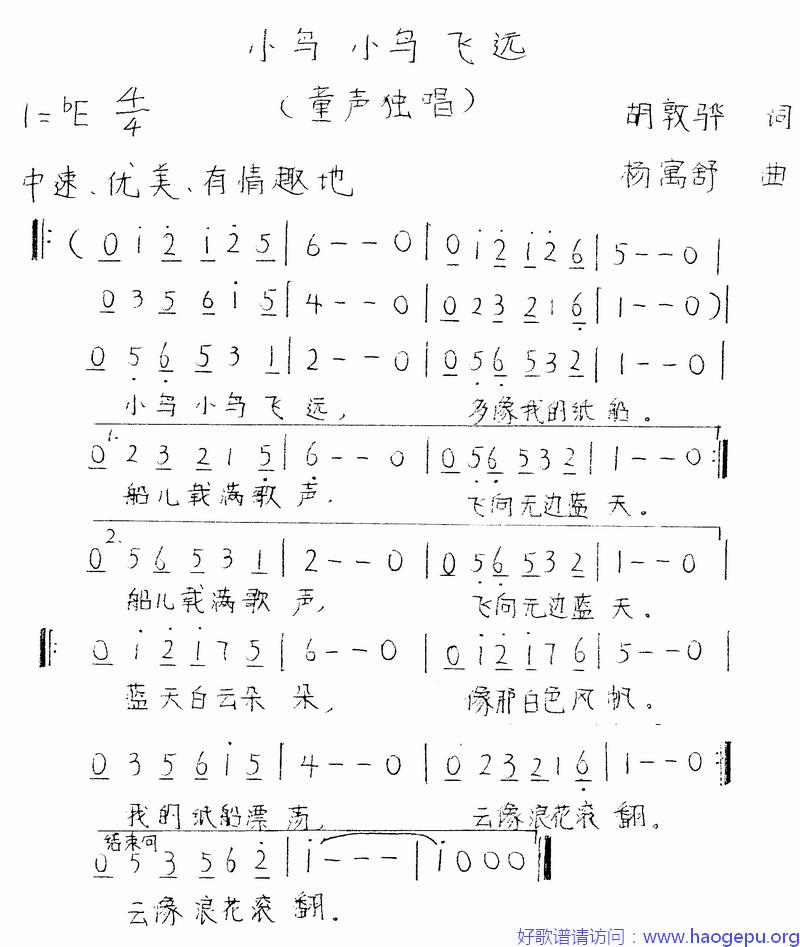 小鸟 小鸟 飞远
(童声独唱)
1=ᵇE 4/4
胡敦骅 词
中速、优美、有情趣地
杨寓舒 曲
‖: (0 i̇ 2̇ i̇ 2̇ 5 | 6 - - 0 | 0 i̇ 2̇ i̇ 2̇ 6 | 5 - - 0 |
0 3 5 6 i̇ 5 | 4 - - 0 | 0 2 3 2 1 6̣ | 1 - - 0) |
0 5̣ 6̣ 5 3 1 | 2 - - 0 | 0 5̣ 6̣ 5 3 2 | 1 - - 0 |
小鸟 小鸟 飞 远, 多像我的纸 船。
1.
0 2 3 2 1 5̣ | 6̣ - - 0 | 0 5̣ 6̣ 5 3 2 | 1 - - 0 :‖
船儿载满歌 声. 飞向无边蓝 天。
2.
0 5 6 5 3 1 | 2 - - 0 | 0 5̣ 6̣ 5 3 2 | 1 - - 0 |
船儿载满歌 声, 飞向无边蓝 天。
‖: 0 i̇ 2̇ i̇ 7 5 | 6 - - 0 | 0 i̇ 2̇ i̇ 7 6 | 5 - - 0 |
蓝天白云朵 朵, 像那白色风 帆。
0 3 5 6 i̇ 5 | 4 - - 0 | 0 2 3 2 1 6̣ | 1 - - 0 :‖
我的纸船漂 荡, 云像浪花滚 翻。
结束句
0 5 3 5 6 2̇ | i̇ - - - | i̇ 0 0 0 ‖
云像浪花滚 翻。
好歌谱请访问：www.haogepu.org